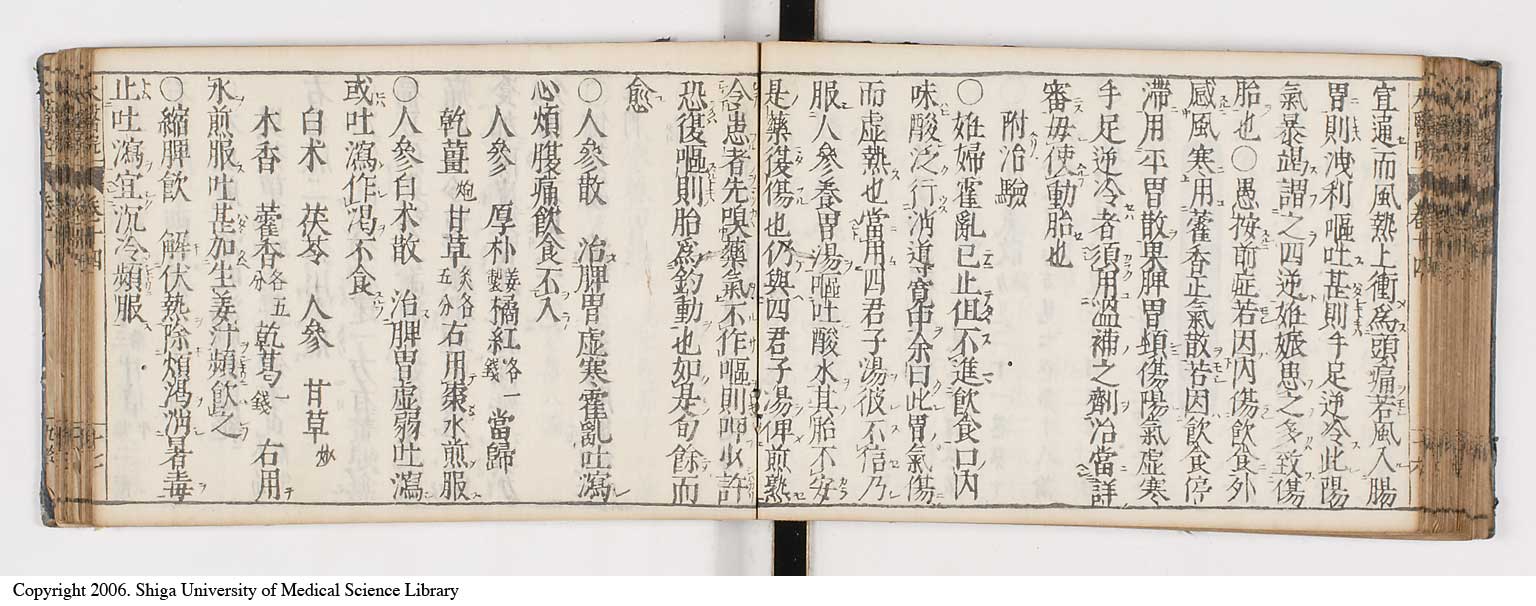 宜通而風熱上衝為頭痛若風入腸
胃則洩利嘔吐甚則手足逆冷此陽
氣暴竭謂之四逆妊娠患之多致傷
胎也○愚按前症若因內傷飲食外
感風寒用藿香正氣散若因飲食停
滯用平胃散果脾胃頓傷陽氣虛寒
手足逆冷者須用溫補之劑治當詳
審毋使動胎也
附治驗
○妊婦霍亂已止但不進飲食口內
味酸泛行消導寬中余曰此胃氣傷
而虛熱也當用四君子湯彼不信乃
服人參養胃湯嘔吐酸水其胎不安
是藥復傷也仍與四君子湯俾煎熟
令患者先嗅藥氣不作嘔則呷少許
恐復嘔則胎為釣動也如是旬餘而
愈
○人參散 治脾胃虛寒霍亂吐瀉
心煩腹痛飲食不入
人參 厚朴姜製橘紅各一錢當歸
乾薑炮甘草炙各五分右用棗水煎服
○人參白朮散 治脾胃虛弱吐瀉
或吐瀉作渴不食
白朮 茯苓 人參 甘草炒
木香 藿香各五分乾葛一錢 右用
水煎服吐甚加生姜汁頻飲之
○縮脾飲 解伏熱除煩渴消暑毒
止吐瀉宜沉冷頻服
Copyright 2006. Shiga University of Medical Science Library